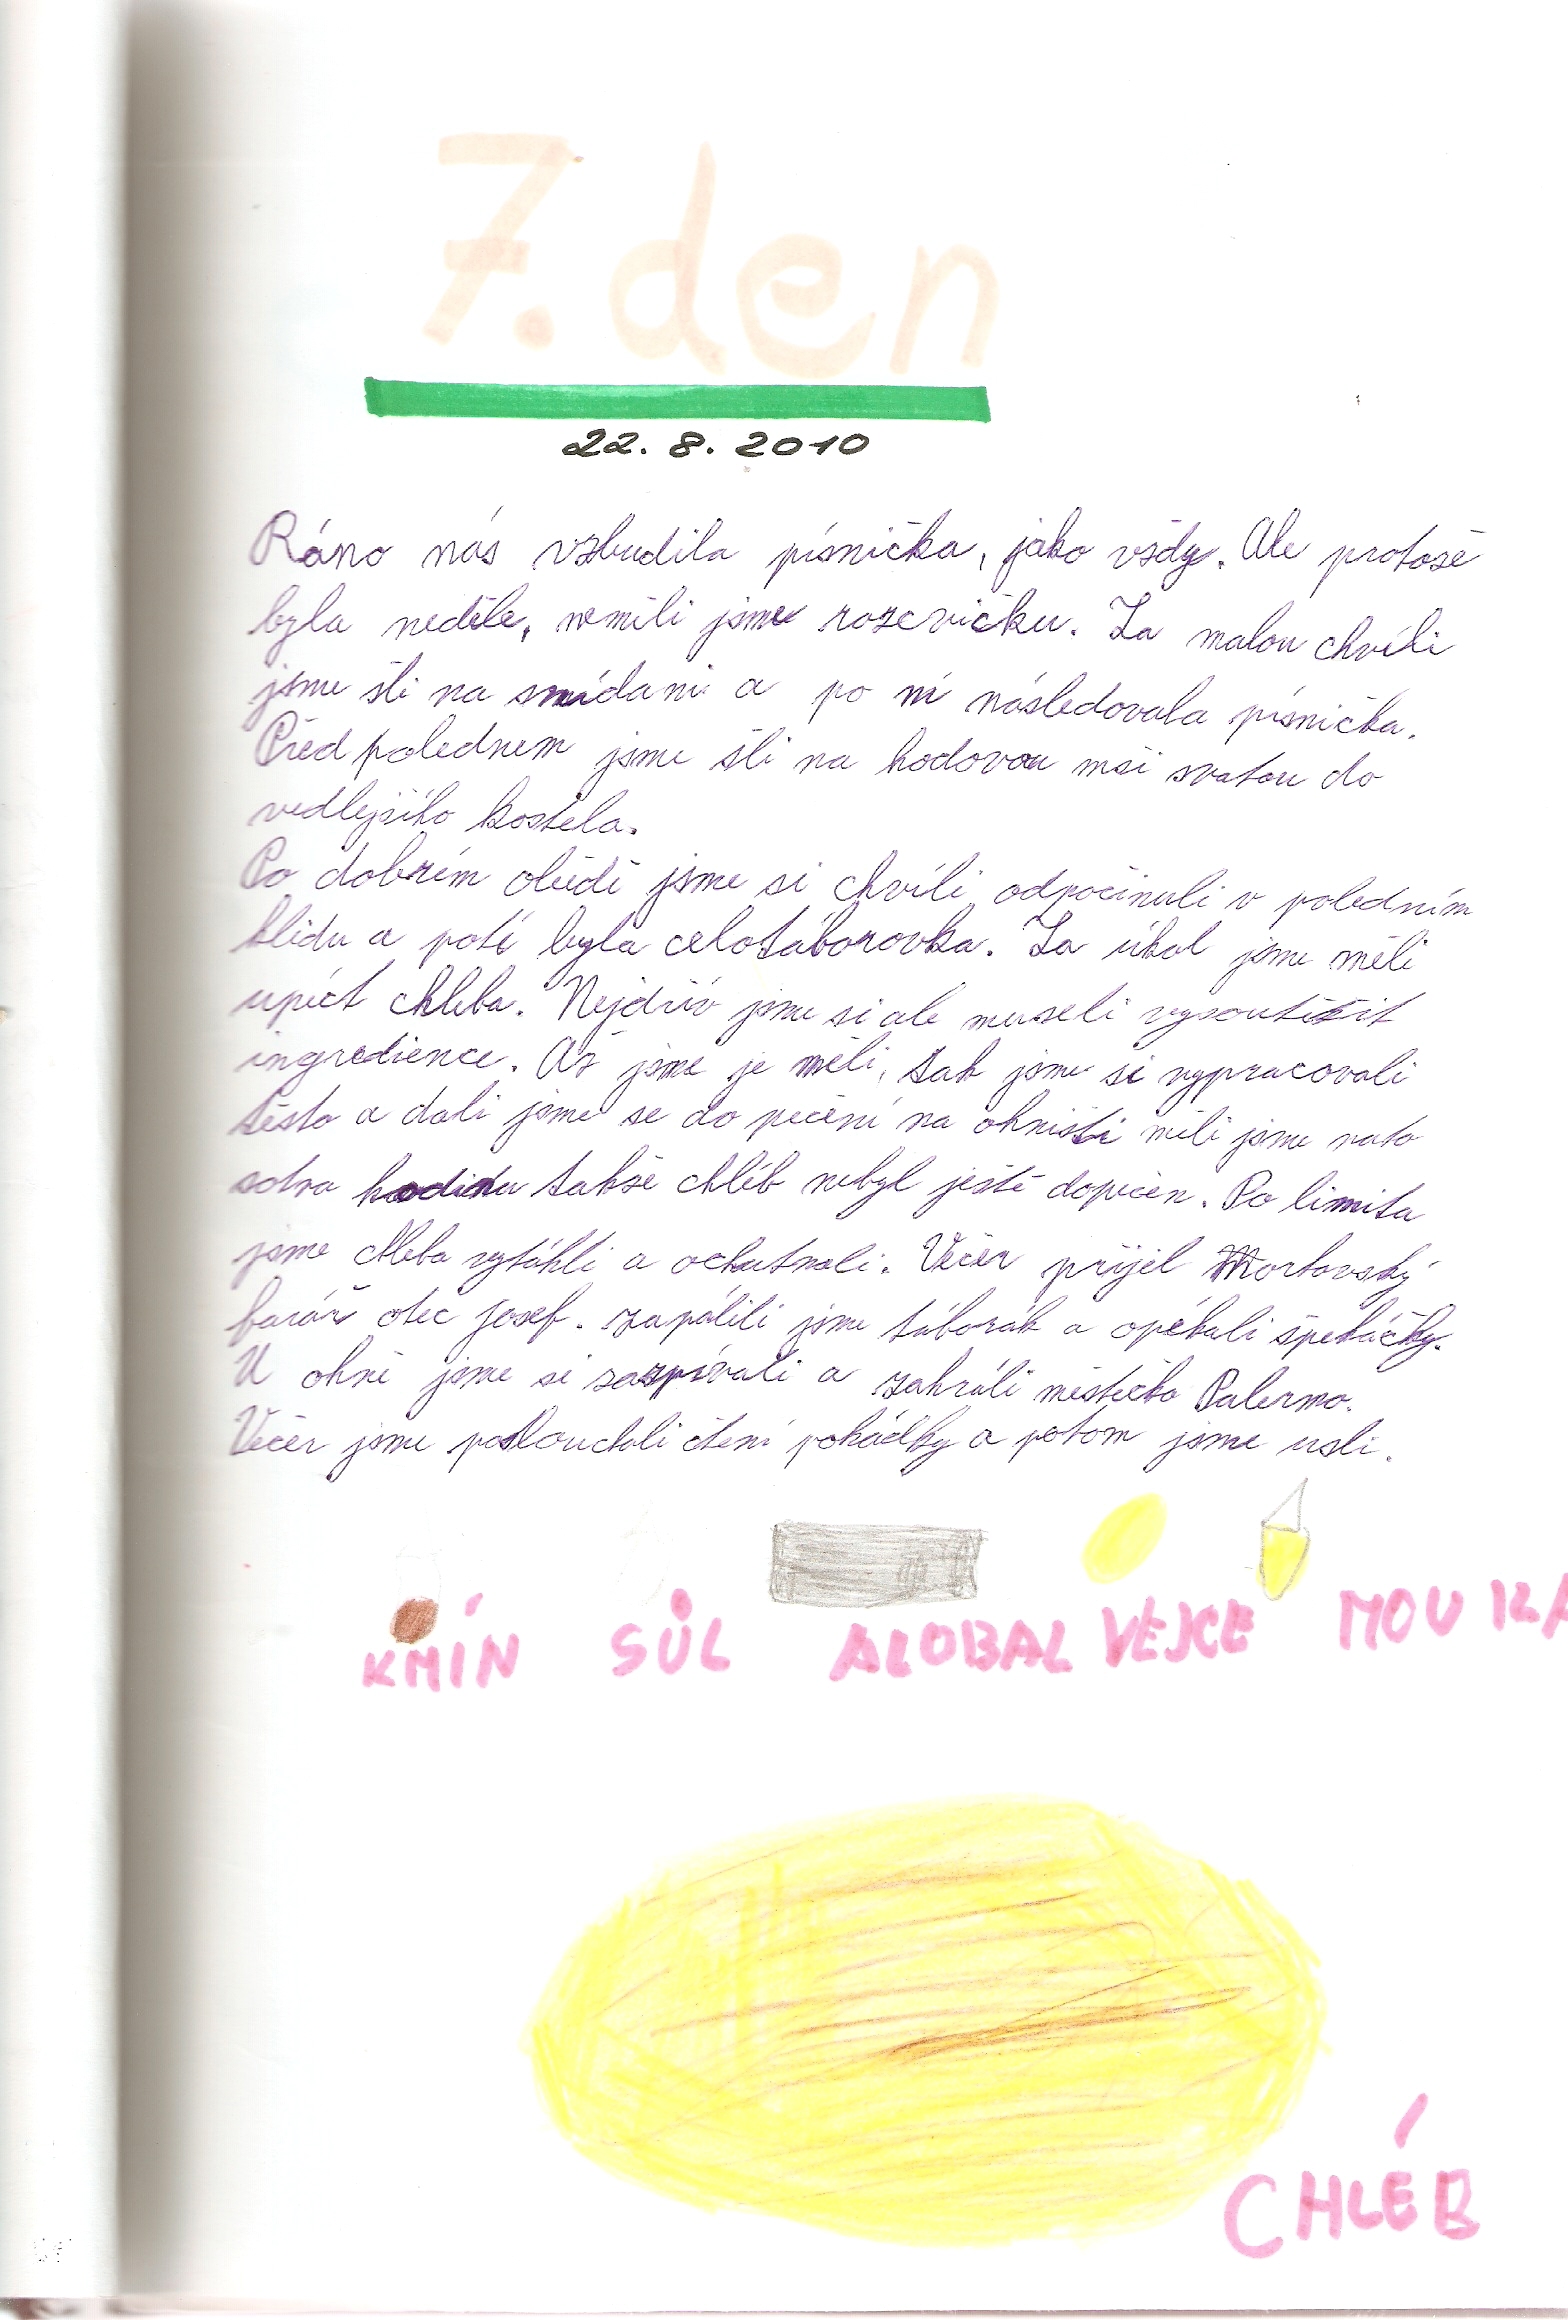 7. den
22. 8. 2010
Ráno nás vzbudila písnička, jako vždy. Ale protože
byla neděle, neměli jsme rozcvičku. Za malou chvíli
jsme šli na snídani a po ní následovala písnička.
Před polednem jsme šli na hodovou mši svatou do
vedlejšího kostela.
Po dobrém obědě jsme si chvíli odpočinuli v poledním
klidu a poté byla celotáborovka. Za úkol jsme měli
upéct chleba. Nejdřív jsme si ale museli vysoutěžit
ingredience. Až jsme je měli, tak jsme si vypracovali
těsto a dali jsme se do pečení na ohništi měli jsme nato
sotva hodinu takže chléb nebyl ještě dopečen. Po limitu
jsme chleba vytáhli a ochutnali. Večer přijel Mortovský
farář otec Josef. zapálili jsme táborák a opékali špekáčky.
U ohně jsme si zazpívali a zahráli městečko Palermo.
Večer jsme poslouchali čtení pohádky a potom jsme usli.
KMÍN SŮL ALOBAL VEJCE MOUKA
CHLÉB